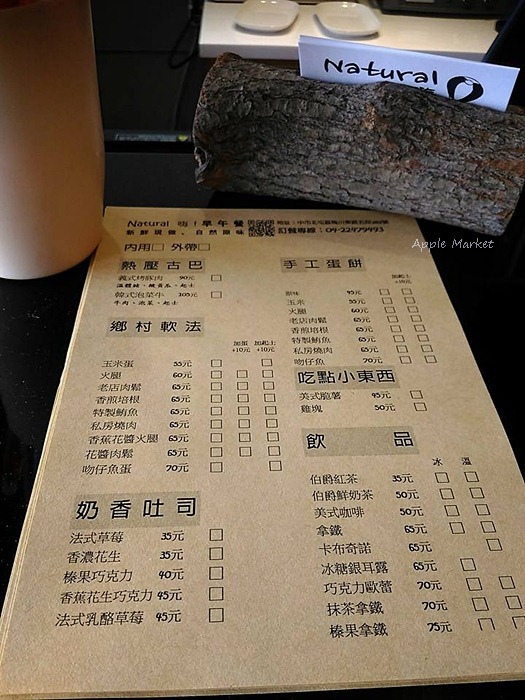 Natural
Apple Market
Natural 嗨!早午餐
新鮮現做。自然原味
訂餐專線:09-22979993
內用□ 外帶□
熱壓古巴
義式烤豚肉 90元 □
韓式泡菜牛 105元 □
牛肉、泡菜、起士
鄉村軟法
加蛋 +10元 加起士 +10元
玉米蛋 55元
火腿 60元
老店肉鬆 65元
香煎培根 65元
特製鮪魚 65元
私房燒肉 65元
香蕉花醬火腿 65元
花醬肉鬆 65元
吻仔魚蛋 70元
奶香吐司
法式草莓 35元
香濃花生 35元
榛果巧克力 40元
香蕉花生巧克力 45元
法式乳酪草莓 45元
手工蛋餅
加起士 +10元
原味 45元
玉米 55元
火腿 60元
老店肉鬆 65元
香煎培根 65元
特製鮪魚 65元
私房燒肉 65元
吻仔魚 70元
吃點小東西
美式脆薯 45元
雞塊 50元
飲品
冰 溫
伯爵紅茶 35元
伯爵鮮奶茶 50元
美式咖啡 50元
拿鐵 65元
卡布奇諾 65元
冰糖銀耳露 65元
巧克力歐蕾 70元
抹茶拿鐵 70元
榛果拿鐵 75元